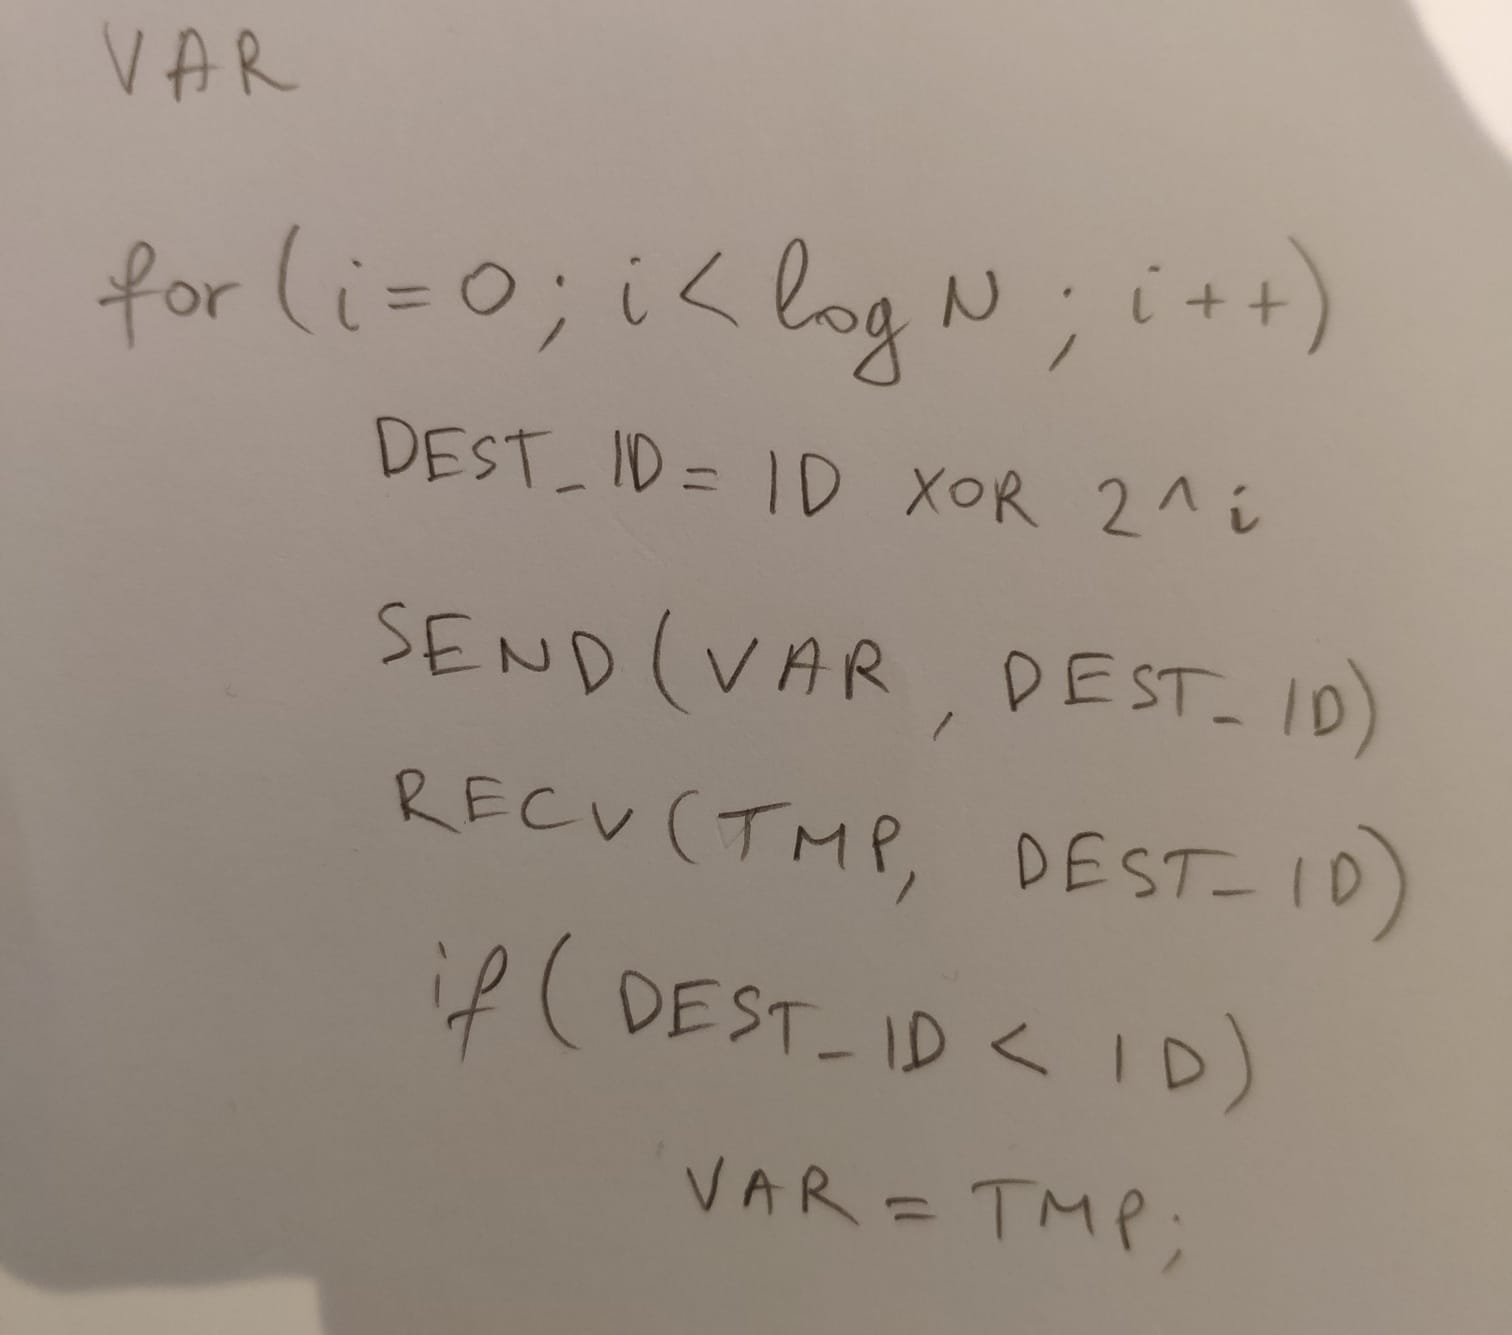 VAR
for (i=0; i< log N; i++)
DEST_ID = ID XOR 2^i
SEND (VAR, DEST_ID)
RECV (TMP, DEST_ID)
if ( DEST_ID < ID)
VAR = TMP;